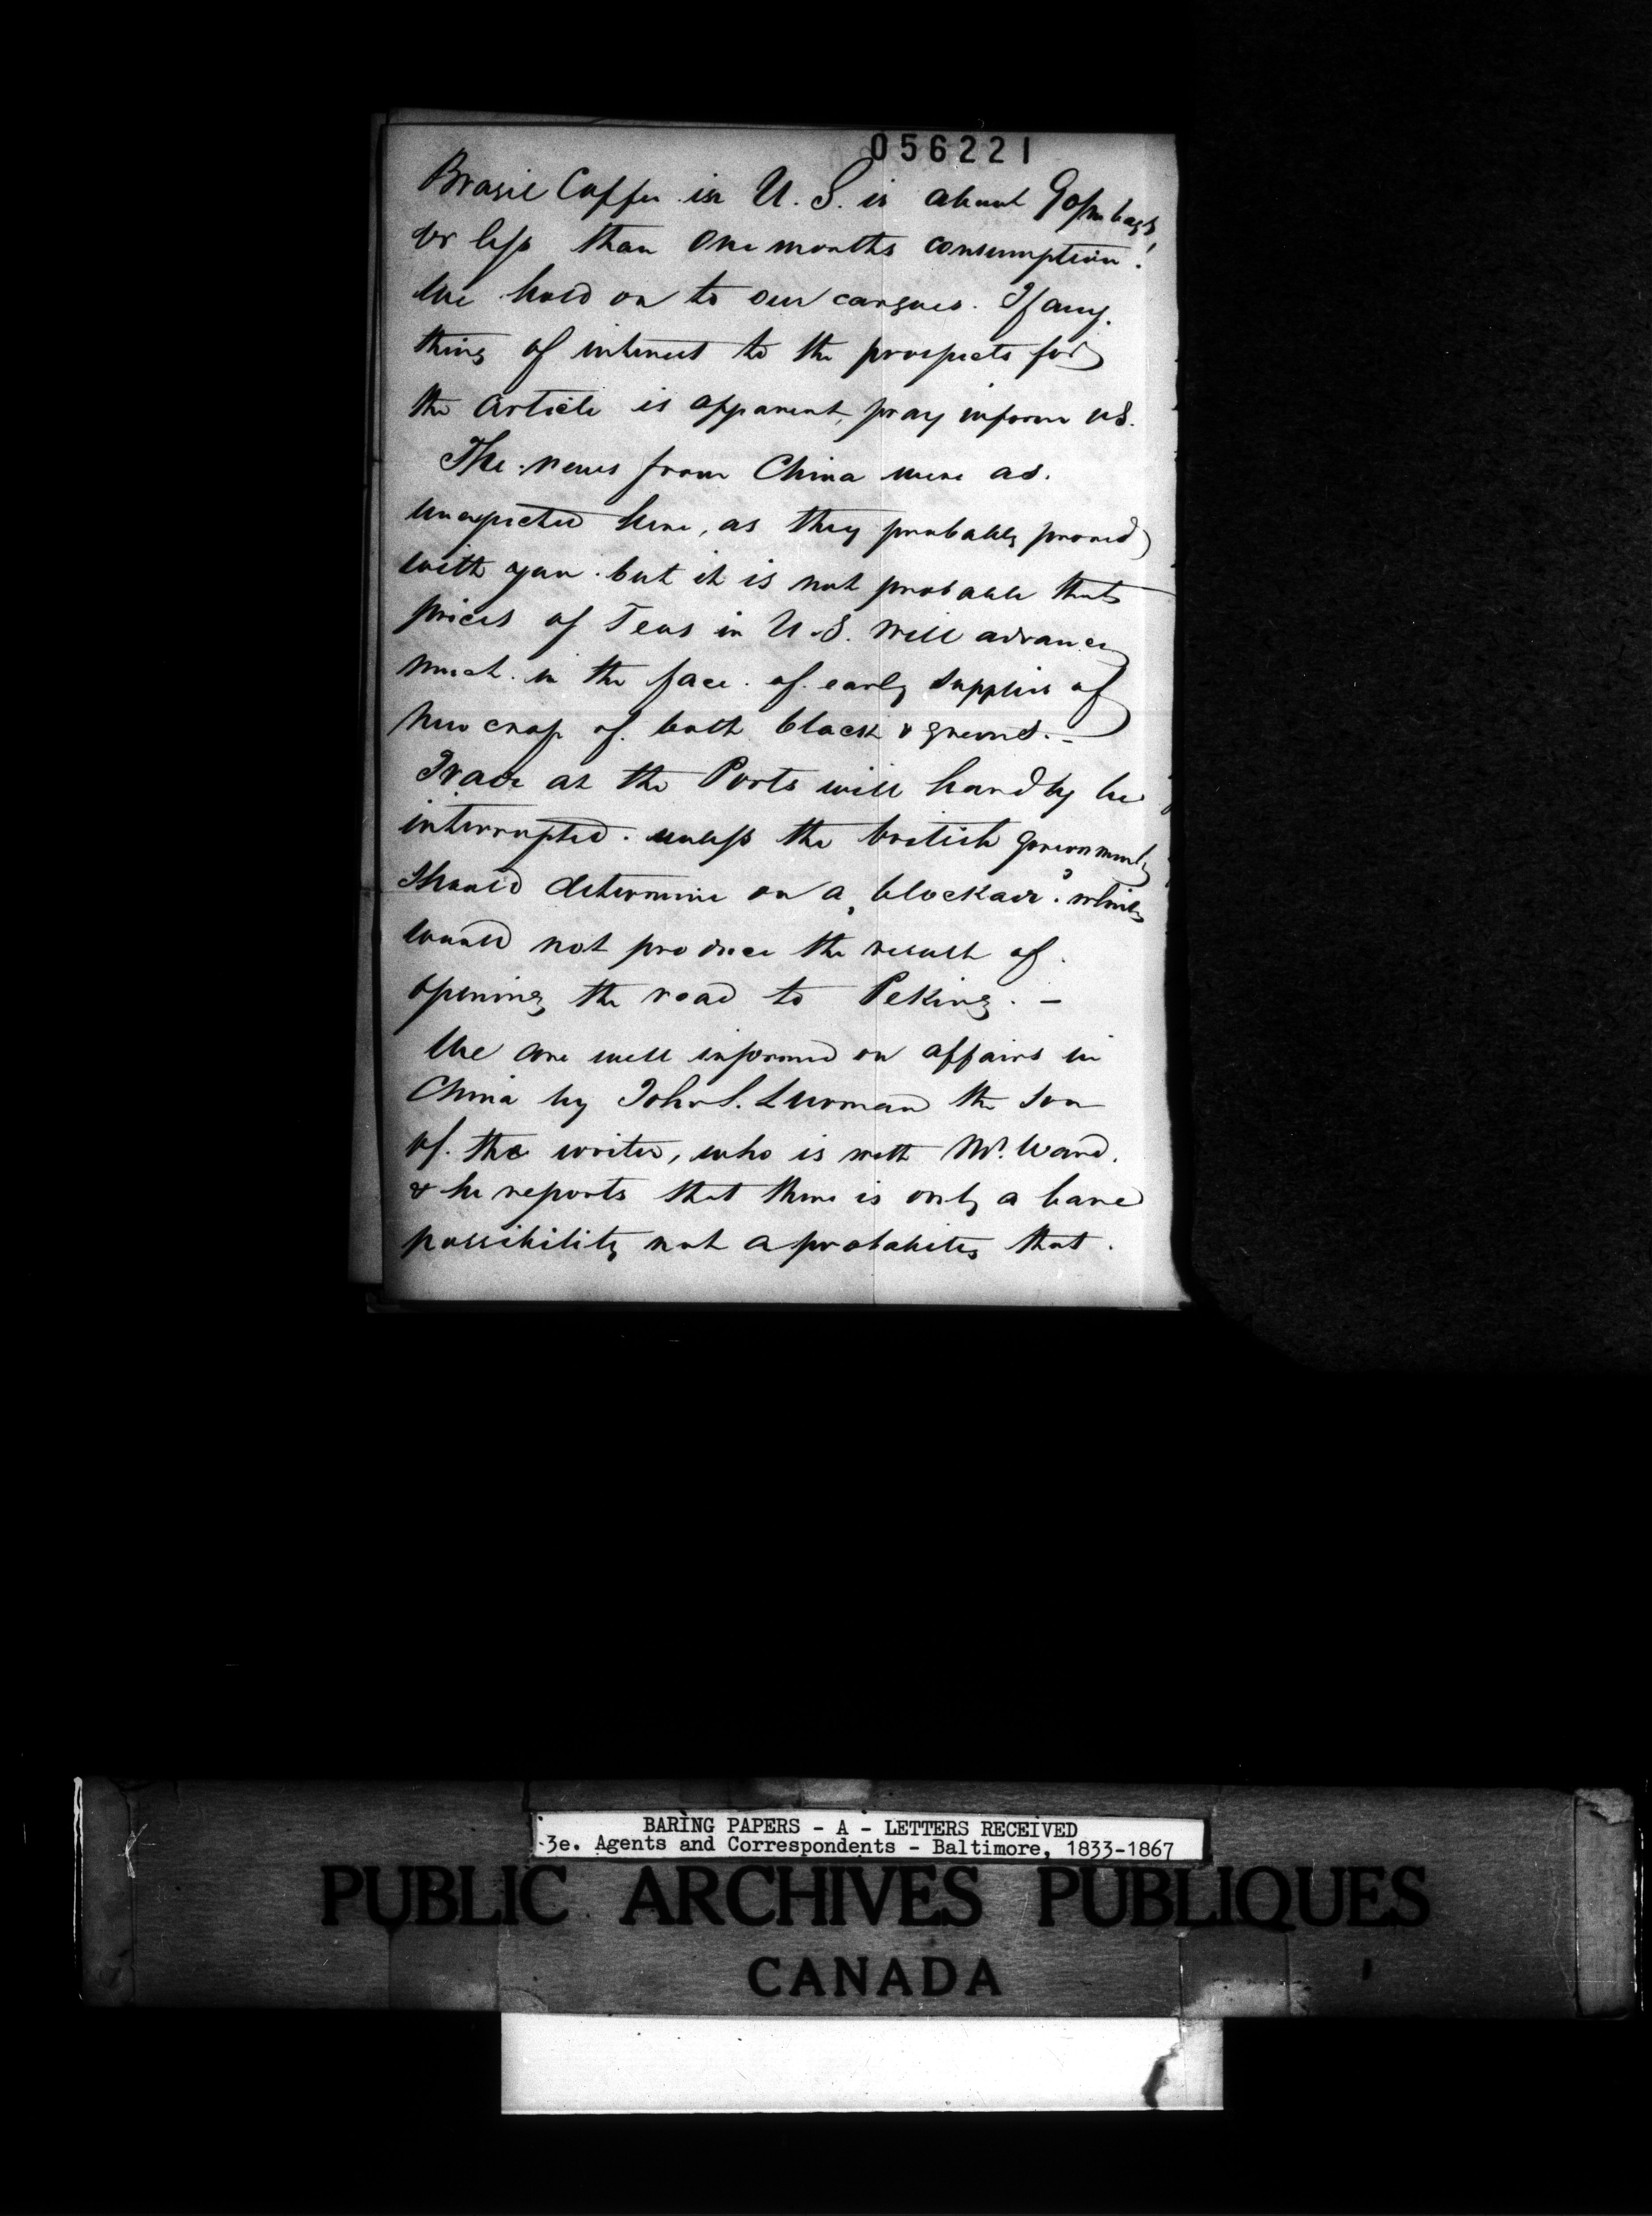 056221
Brasil Coffee in U.S. is about 90/m bags,
or less than One months consumption!
We hold on to our cargoes. If any.
thing of interest to the prospects for
the Article is apparent, pray inform us.
The news from China were as.
unexpected here, as they probably proved
with you. but it is not probable that
prices of Teas in U.S. will advance
much. in the face. of. early supplies of
new crop of. both black & greens. —
Trade at the Ports will hardly be
interrupted. unless the british government
should determine on a "blockade". which
would not produce the result of.
opening the road to Peking. —
We are well informed on affairs in
China by John S. Lurman the son
of. the writer, who is with Mr. Ward.
& he reports that there is only a bare
possibility not a probability that.
BARING PAPERS - A - LETTERS RECEIVED
3e. Agents and Correspondents - Baltimore, 1833-1867
PUBLIC ARCHIVES PUBLIQUES
CANADA